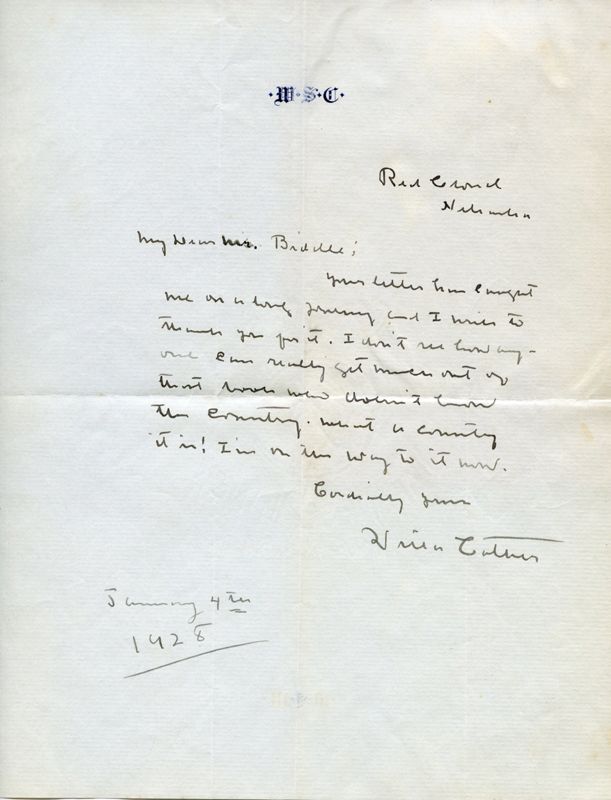 ·W·S·C·
Red Cloud
Nebraska
My Dear Mr. Biddle;
Your letter has caught
me on a long journey and I write to
thank you for it. I don't see how any-
one can really get much out of
that book who doesn't know
the country. What a country
it is! I'm on the way to it now.
Cordially yours
Willa Cather
January 4th
1928